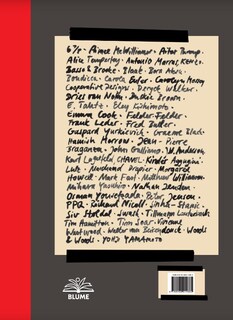 6/7 • Aimee McWilliams • Aitor Throup •
Alice Temperley • Antonio Marras, KENZO •
Basso & Brooke • Bloat • Bora Aksu •
Boudicca • Carola Euler • Carolyn Massey
Cooperative Designs • Deryck Walker •
Dries van Noten • Duckie Brown •
E. Tautz • Eley Kishimoto •
Emma Cook • Felder • Felder •
Frank Leder • Fred Butler •
Gaspard Yurkievich • Graeme Black •
Hamish Morrow • Jean - Pierre
Braganza • John Galliano •
Karl Lagerfeld, CHANEL • Kinder Aggugini •
Lutz • Marchand Drapier • Margaret
Howell • Mark Fast • Matthew Williamson
Mihara Yasuhiro • Nathan Jenden •
Osman Yousefzada • Peter Jensen •
PPQ • Richard Nicoll • Sinha - Stanic •
Siv Støldal • Swash • Tillmann Lauterbach
Tim Hamilton • Tim Soar • Vivienne
Westwood • Walter van Beirendonck • Woods
& Woods • YOHJI YAMAMOTO
BLUME